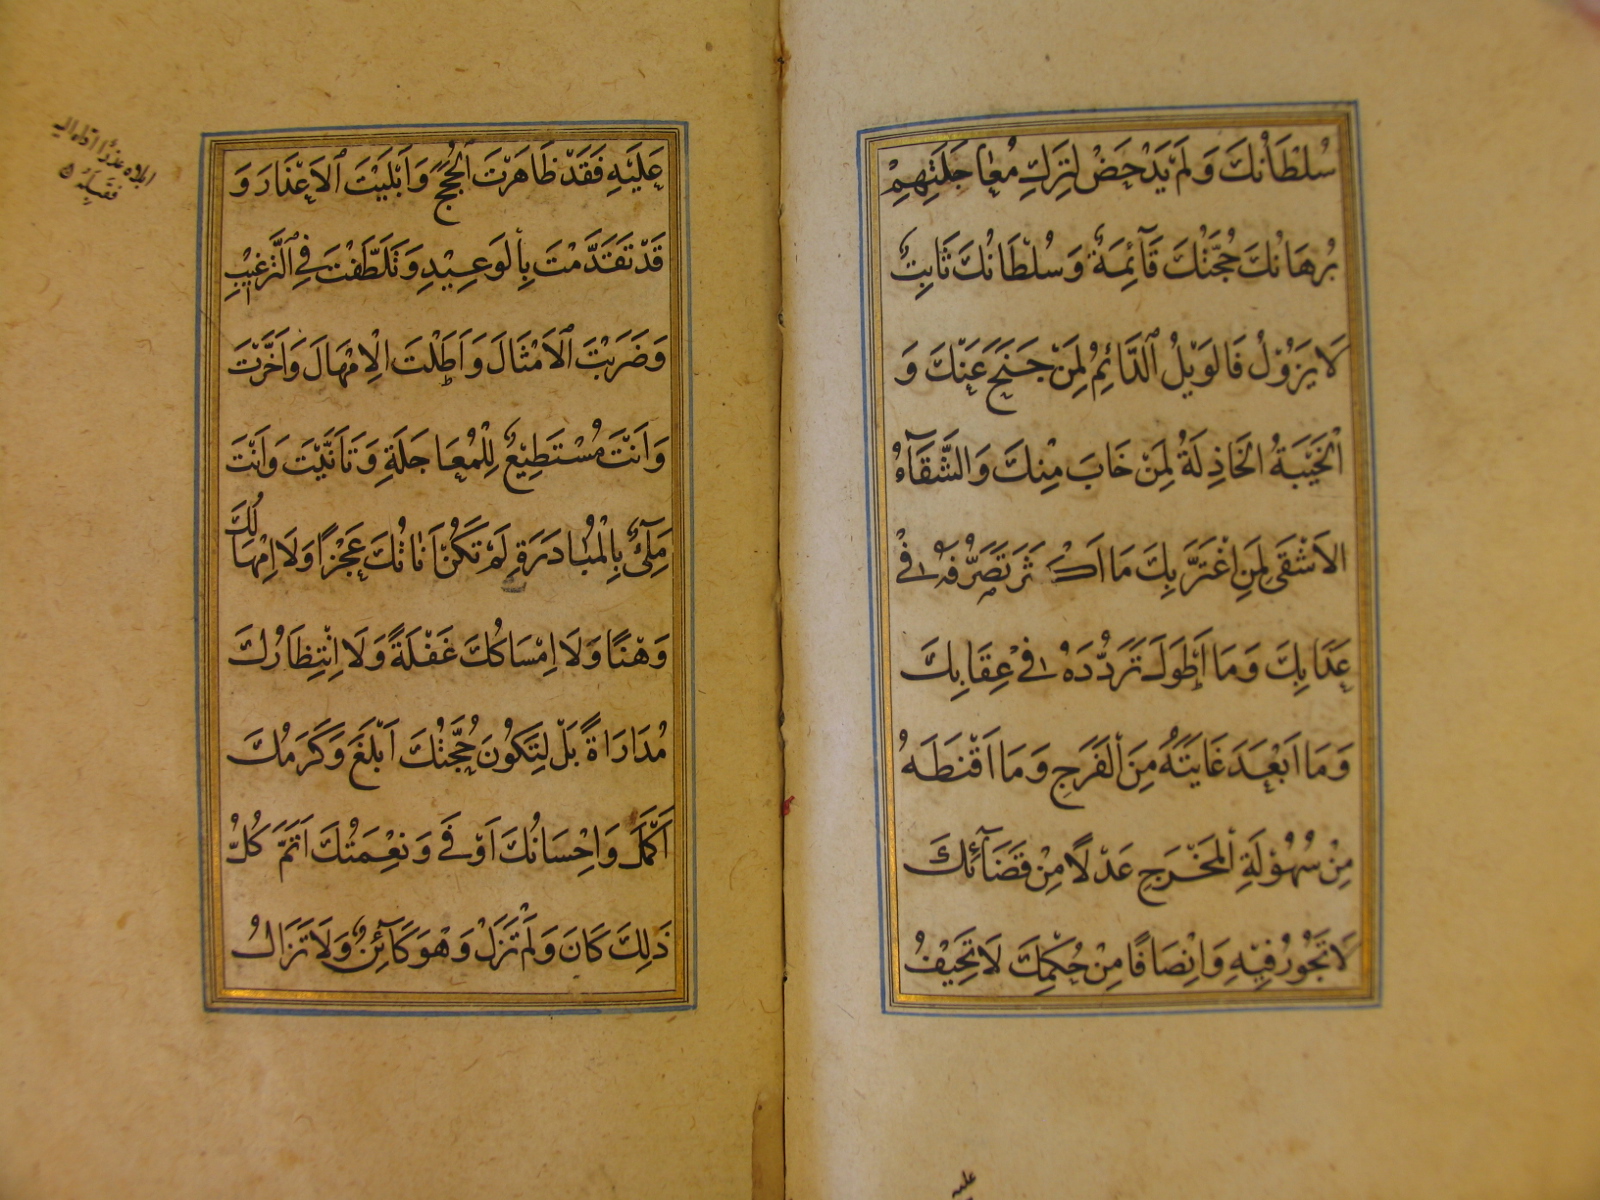 سُلْطَانُكَ وَلَمْ يَدْحَضْ لِتَرْكِ مُعَاجَلَتِهِمْ
بُرْهَانُكَ حُجَّتُكَ قَآئِمَةٌ وَسُلْطَانُكَ ثَابِتٌ
لَا يَزُوْلُ فَالْوَيْلُ الدَّائِمُ لِمَنْ جَنَحَ عَنْكَ وَ
الْخَيْبَةُ الْخَاذِلَةُ لِمَنْ خَابَ مِنْكَ وَالشَّقَآءُ
الْاَشْقَى لِمَنِ اغْتَرَّ بِكَ مَا اَكْثَرَ تَصَرُّفَهُ فِيْ
عَذَابِكَ وَمَا اَطْوَلَ تَرَدُّدَهُ فِيْ عِقَابِكَ
وَمَا اَبْعَدَ غَايَتَهُ مِنَ الْفَرَجِ وَمَا اَقْنَطَهُ
مِنْ سُهُوْلَةِ الْمَخْرَجِ عَدْلًا مِنْ قَضَآئِكَ
لَا تَجُوْرُ فِيْهِ وَاِنْصَافًا مِنْ حُكْمِكَ لَا تَحِيْفُ
عليه
عَلَيْهِ فَقَدْ ظَاهَرْتَ الْحُجَجَ وَاَبْلَيْتَ الْاَعْذَارَ وَ
قَدْ تَقَدَّمْتَ بِالْوَعِيْدِ وَتَلَطَّفْتَ فِي التَّرْغِيْبِ
وَضَرَبْتَ الْاَمْثَالَ وَاَطَلْتَ الْاِمْهَالَ وَاَخَّرْتَ
وَاَنْتَ مُسْتَطِيْعٌ لِلْمُعَاجَلَةِ وَتَاَنَّيْتَ وَاَنْتَ
مَلِيْءٌ بِالْمُبَادَرَةِ لَمْ تَكُنْ اَنَاتُكَ عَجْزًا وَلَا اِمْهَالُكَ
وَهْنًا وَلَا اِمْسَاكُكَ غَفْلَةً وَلَا اِنْتِظَارُكَ
مُدَارَاةً بَلْ لِتَكُوْنَ حُجَّتُكَ اَبْلَغَ وَكَرَمُكَ
اَكْمَلَ وَاِحْسَانُكَ اَوْفَى وَنِعْمَتُكَ اَتَمَّ كُلُّ
ذٰلِكَ كَانَ وَلَمْ تَزَلْ وَهُوَ كَآئِنٌ وَلَا تَزَالُ
ابلاه عذرًا اداه اليه
فقبله